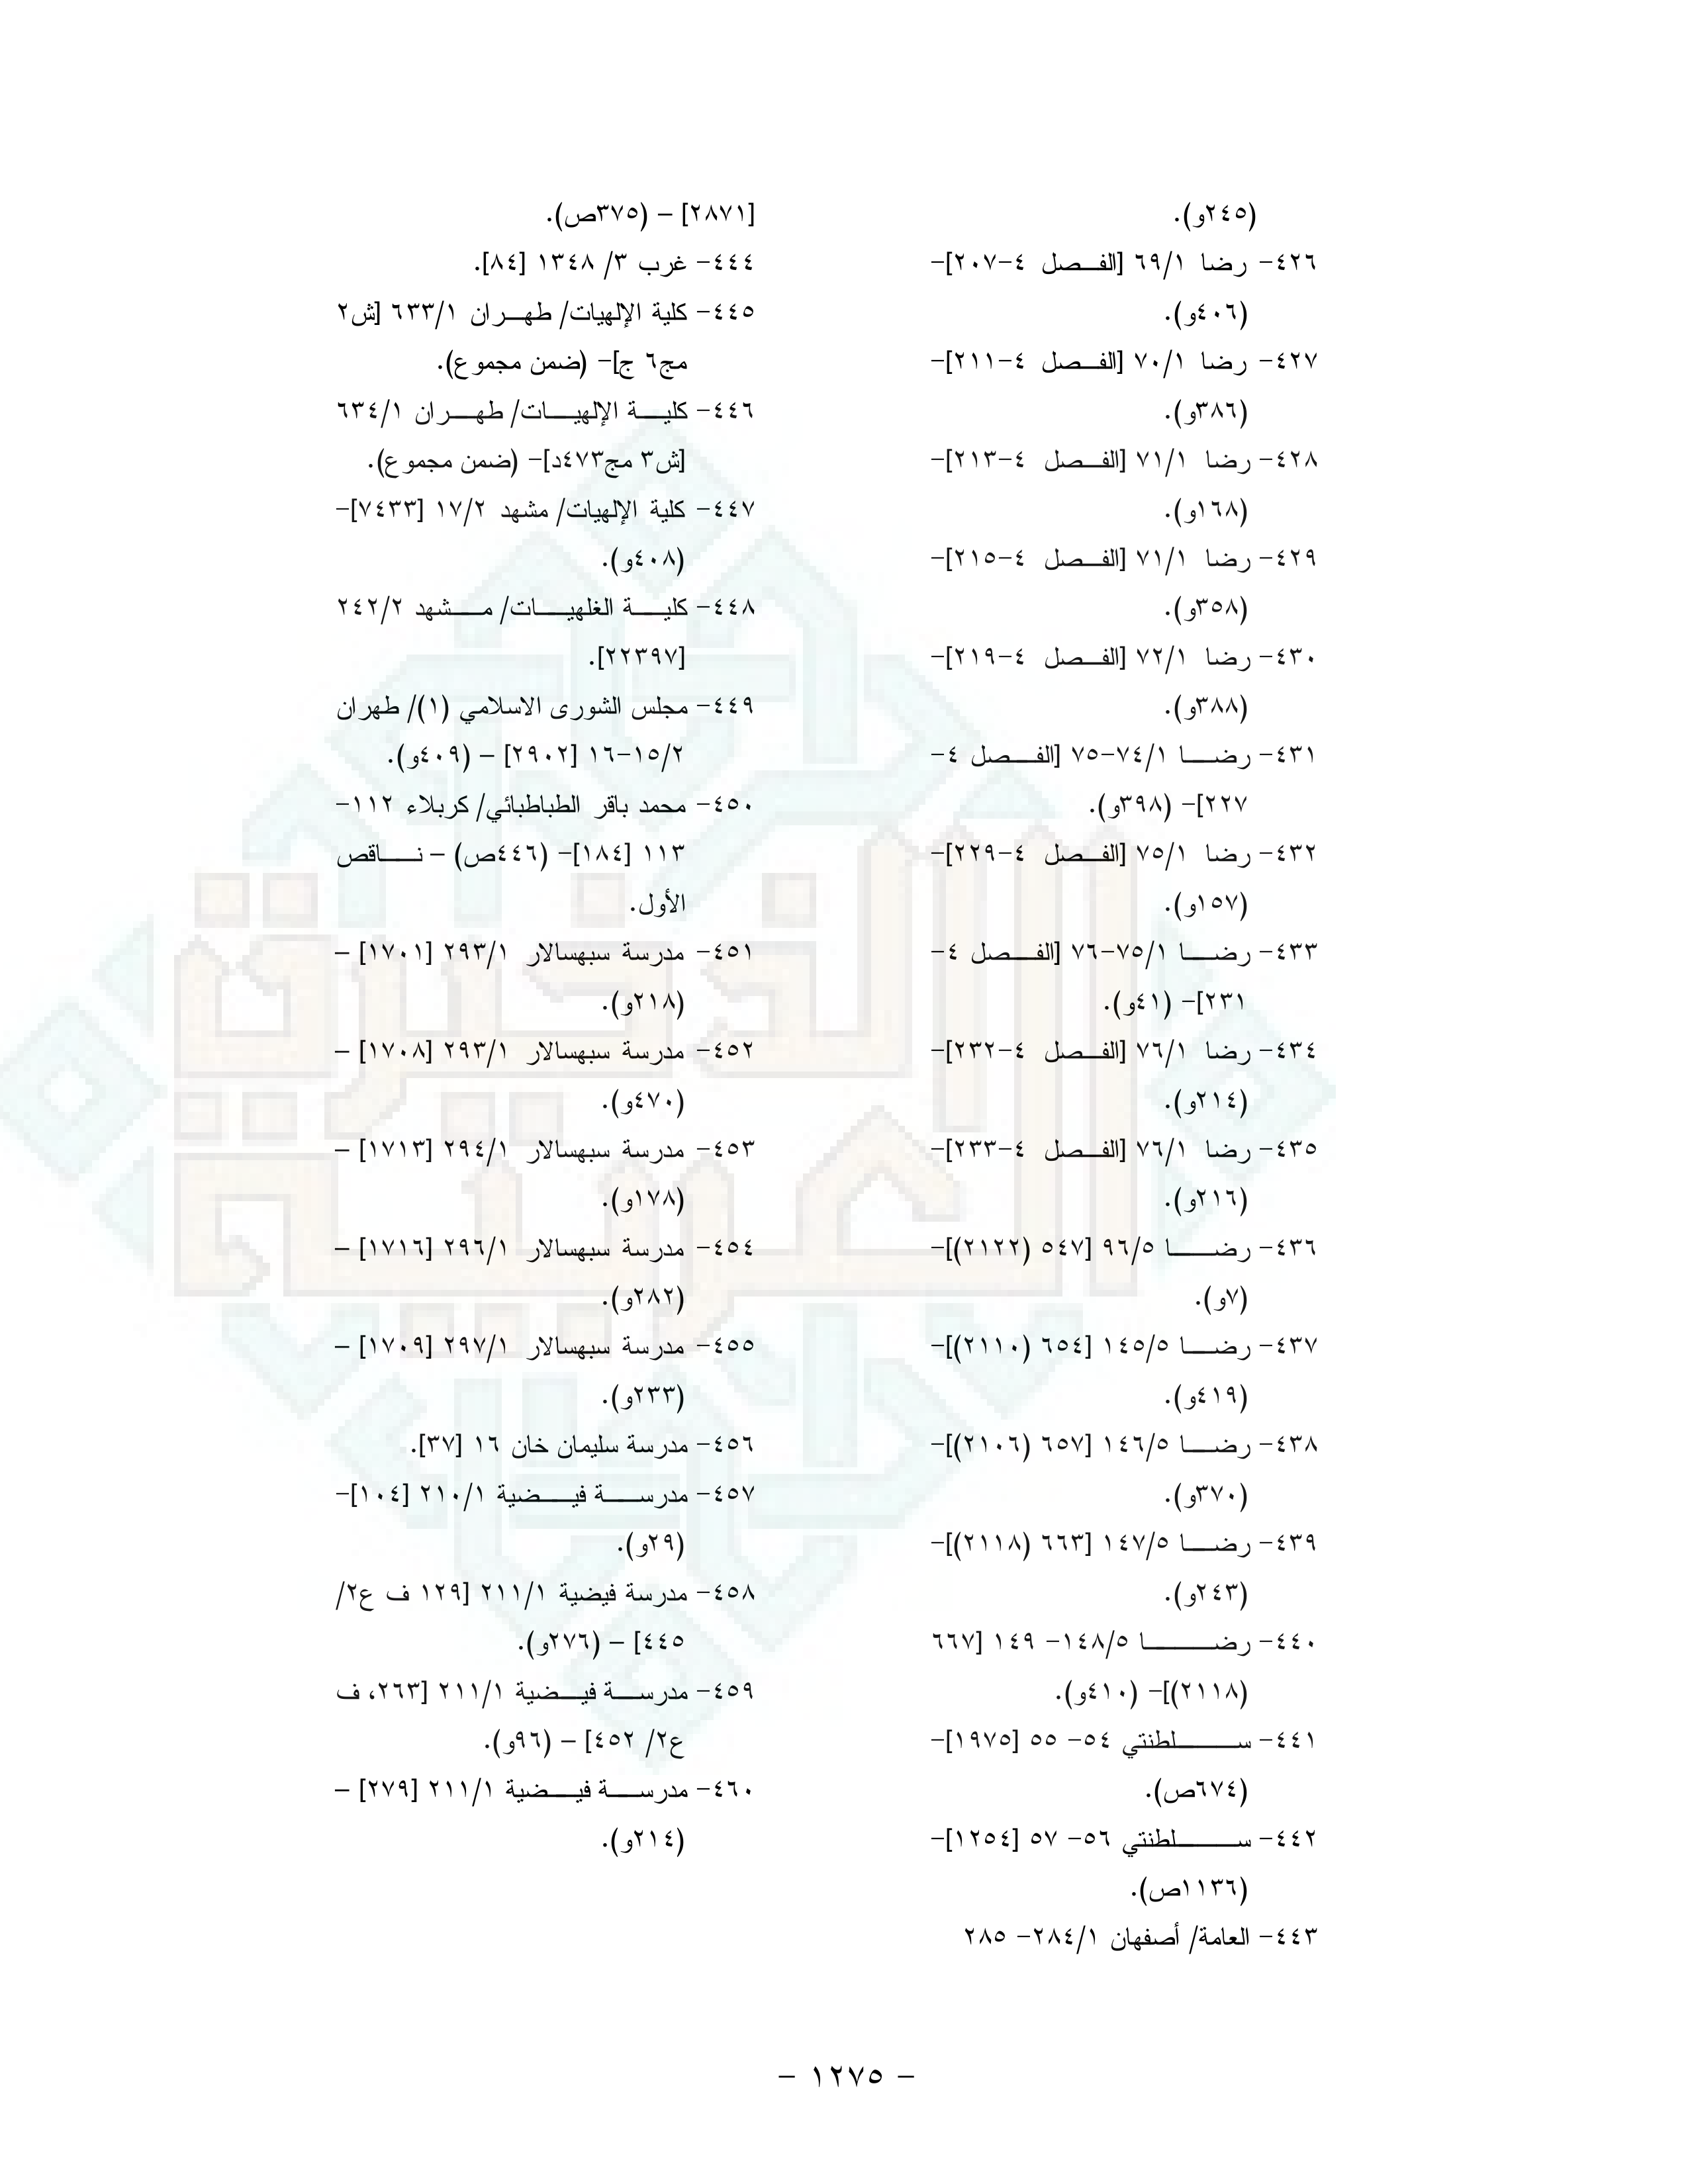 (٢٤٥و).
٤٢٦- رضا ٦٩/١ [الفصل ٤-٢٠٧]-
(٤٠٦و).
٤٢٧- رضا ٧٠/١ [الفصل ٤-٢١١]-
(٣٨٦و).
٤٢٨- رضا ٧١/١ [الفصل ٤-٢١٣]-
(١٦٨و).
٤٢٩- رضا ٧١/١ [الفصل ٤-٢١٥]-
(٣٥٨و).
٤٣٠- رضا ٧٢/١ [الفصل ٤-٢١٩]-
(٣٨٨و).
٤٣١- رضا ٧٤/١-٧٥ [الفصل ٤-
٢٢٧]- (٣٩٨و).
٤٣٢- رضا ٧٥/١ [الفصل ٤-٢٢٩]-
(١٥٧و).
٤٣٣- رضا ٧٥/١-٧٦ [الفصل ٤-
٢٣١]- (٤١و).
٤٣٤- رضا ٧٦/١ [الفصل ٤-٢٣٢]-
(٢١٤و).
٤٣٥- رضا ٧٦/١ [الفصل ٤-٢٣٣]-
(٢١٦و).
٤٣٦- رضا ٩٦/٥ [٥٤٧ (٢١٢٢)]-
(٧و).
٤٣٧- رضا ١٤٥/٥ [٦٥٤ (٢١١٠)]-
(٤١٩و).
٤٣٨- رضا ١٤٦/٥ [٦٥٧ (٢١٠٦)]-
(٣٧٠و).
٤٣٩- رضا ١٤٧/٥ [٦٦٣ (٢١١٨)]-
(٢٤٣و).
٤٤٠- رضا ١٤٨/٥- ١٤٩ [٦٦٧
(٢١١٨)]- (٤١٠و).
٤٤١- سلطنتي ٥٤- ٥٥ [١٩٧٥]-
(٦٧٤ص).
٤٤٢- سلطنتي ٥٦- ٥٧ [١٢٥٤]-
(١١٣٦ص).
٤٤٣- العامة/ أصفهان ٢٨٤/١- ٢٨٥
[٢٨٧١] – (٣٧٥ص).
٤٤٤- غرب ٣/ ١٣٤٨ [٨٤].
٤٤٥- كلية الإلهيات/ طهران ٦٣٣/١ [ش٢
مج٦ ج]- (ضمن مجموع).
٤٤٦- كلية الإلهيات/ طهران ٦٣٤/١
[ش٣ مج٤٧٣د]- (ضمن مجموع).
٤٤٧- كلية الإلهيات/ مشهد ١٧/٢ [٧٤٣٣]-
(٤٠٨و).
٤٤٨- كلية الغلهيات/ مشهد ٢٤٢/٢
[٢٢٣٩٧].
٤٤٩- مجلس الشورى الاسلامي (١)/ طهران
١٥/٢-١٦ [٢٩٠٢] – (٤٠٩و).
٤٥٠- محمد باقر الطباطبائي/ كربلاء ١١٢-
١١٣ [١٨٤]- (٤٤٦ص) – ناقص
الأول.
٤٥١- مدرسة سبهسالار ٢٩٣/١ [١٧٠١] –
(٢١٨و).
٤٥٢- مدرسة سبهسالار ٢٩٣/١ [١٧٠٨] –
(٤٧٠و).
٤٥٣- مدرسة سبهسالار ٢٩٤/١ [١٧١٣] –
(١٧٨و).
٤٥٤- مدرسة سبهسالار ٢٩٦/١ [١٧١٦] –
(٢٨٢و).
٤٥٥- مدرسة سبهسالار ٢٩٧/١ [١٧٠٩] –
(٢٣٣و).
٤٥٦- مدرسة سليمان خان ١٦ [٣٧].
٤٥٧- مدرسة فيضية ٢١٠/١ [١٠٤]-
(٢٩و).
٤٥٨- مدرسة فيضية ٢١١/١ [١٢٩ ف ع٢/
٤٤٥] – (٢٧٦و).
٤٥٩- مدرسة فيضية ٢١١/١ [٢٦٣، ف
ع٢/ ٤٥٢] – (٩٦و).
٤٦٠- مدرسة فيضية ٢١١/١ [٢٧٩] –
(٢١٤و).
- ١٢٧٥ -